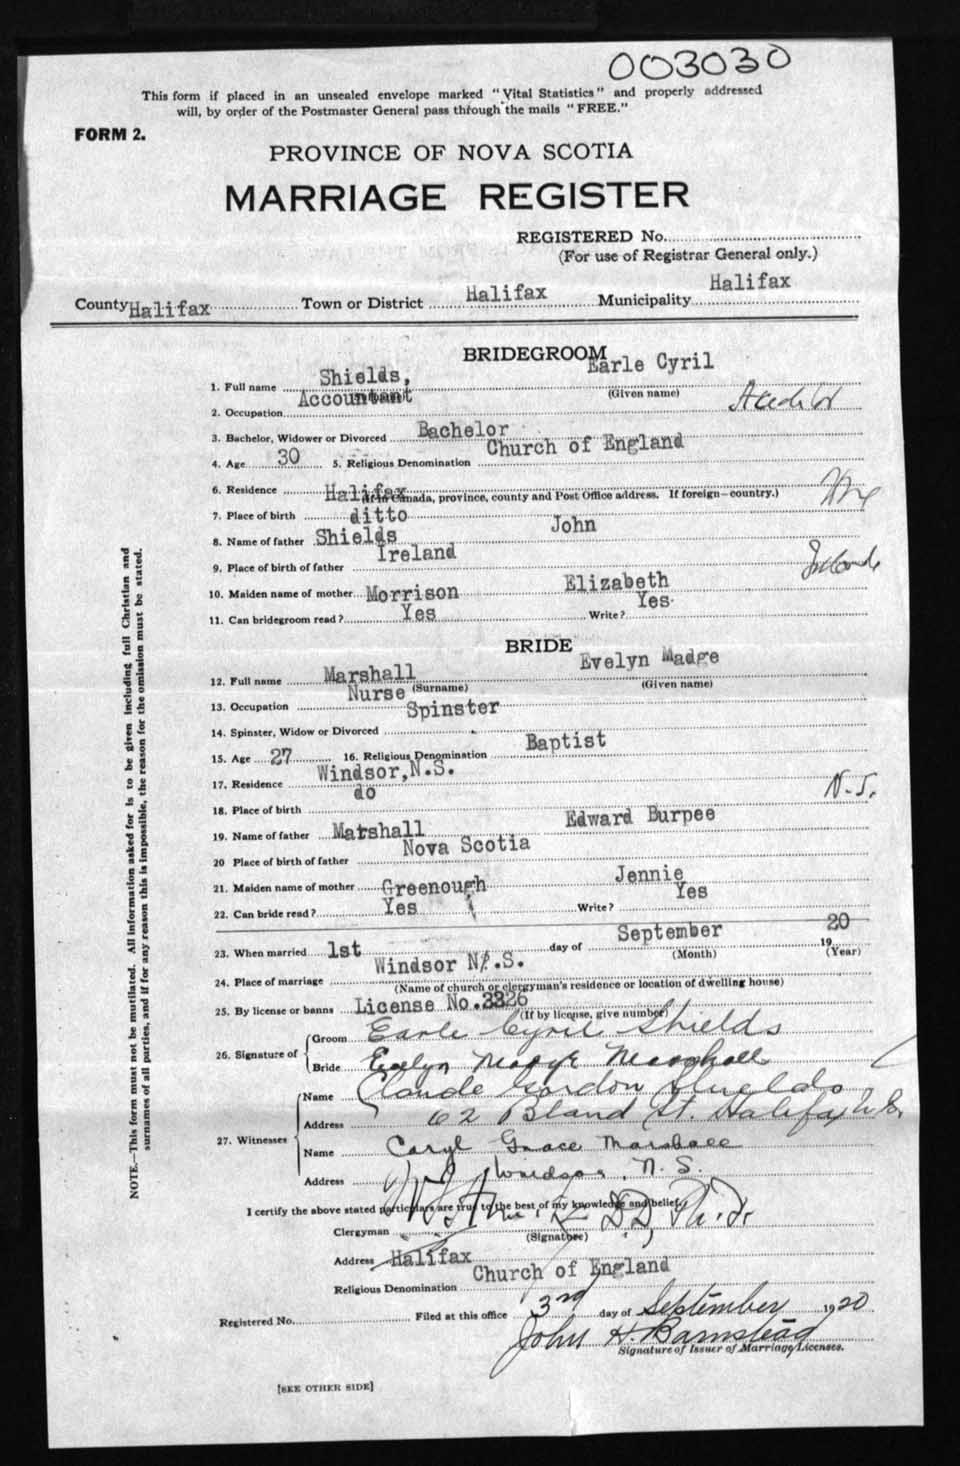 003030
This form if placed in an unsealed envelope marked "Vital Statistics" and properly addressed
will, by order of the Postmaster General pass through the mails "FREE."
FORM 2.
PROVINCE OF NOVA SCOTIA
MARRIAGE REGISTER
REGISTERED No.
(For use of Registrar General only.)
County Halifax Town or District Halifax Municipality Halifax
BRIDEGROOM
1. Full name Shields, Earle Cyril
(Given name)
2. Occupation Accountant
3. Bachelor, Widower or Divorced Bachelor
4. Age 30 5. Religious Denomination Church of England
6. Residence Halifax
(If in Canada, province, county and Post Office address. If foreign—country.)
7. Place of birth ditto
8. Name of father Shields John
9. Place of birth of father Ireland
10. Maiden name of mother Morrison Elizabeth
11. Can bridegroom read? Yes Write? Yes
BRIDE
12. Full name Marshall Evelyn Madge
(Surname) (Given name)
13. Occupation Nurse
14. Spinster, Widow or Divorced Spinster
15. Age 27 16. Religious Denomination Baptist
17. Residence Windsor, N.S.
18. Place of birth do N.S.
19. Name of father Marshall Edward Burpee
20 Place of birth of father Nova Scotia
21. Maiden name of mother Greenough Jennie
22. Can bride read? Yes Write? Yes
23. When married 1st day of September 1920
(Month) (Year)
24. Place of marriage Windsor N.S.
(Name of church or clergyman's residence or location of dwelling house)
25. By license or banns License No. 3326
(If by license, give number)
26. Signature of Groom Earle Cyril Shields
Bride Evelyn Madge Marshall
27. Witnesses Name Claude Gordon Shields
Address 62 Bland St. Halifax N.S.
Name Caryl Grace Marshall
Address Windsor, N. S.
I certify the above stated particulars are true to the best of my knowledge and belief.
Clergyman D.D., Ph.D.
(Signature)
Address Halifax
Religious Denomination Church of England
Registered No. Filed at this office 3rd day of September 1920
John H. Barnstead
Signature of Issuer of Marriage Licenses.
[SEE OTHER SIDE]
NOTE.—This form must not be mutilated. All information asked for is to be given including full Christian and
surnames of all parties, and if for any reason this is impossible, the reason for the omission must be stated.